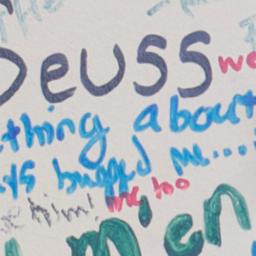 Deuss we
thing about
ys bugged me....
me too
him!
men